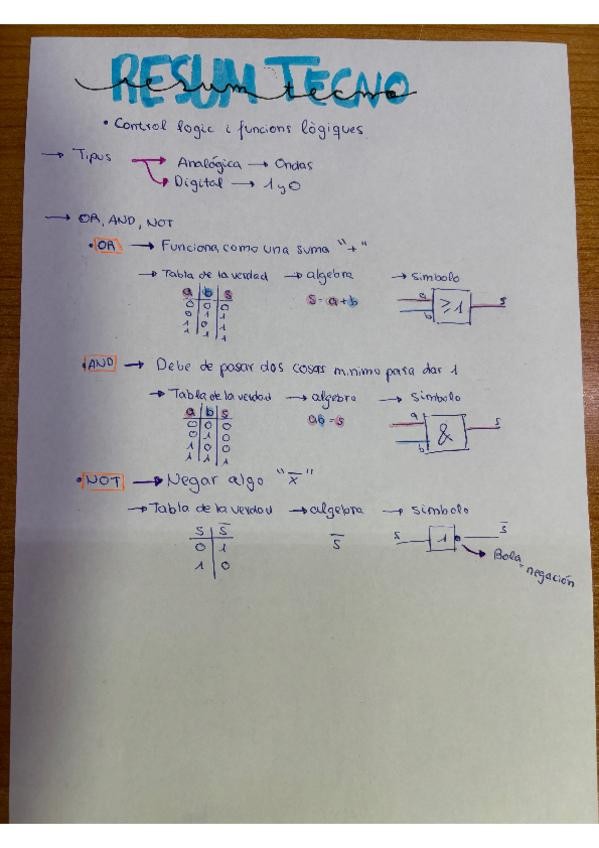 RESUM TECNO
resum tecno
• Control logic i funcions lògiques
→ Tipus → Analógica → Ondas
→ Digital → 1 y 0
→ OR, AND, NOT
• OR → Funciona como una suma "+"
→ Tabla de la verdad → algebra → simbolo
a b s
0 0 0
0 1 1
1 0 1
1 1 1
S = a + b
a
b
≥1
s
• AND → Debe de pasar dos cosas minimo para dar 1
→ Tabla de la verdad → algebra → simbolo
a b s
0 0 0
0 1 0
1 0 0
1 1 1
ab = s
a
b
&
s
• NOT → Negar algo "x̅"
→ Tabla de la verdad → algebra → simbolo
S S̅
0 1
1 0
S̅
s 1 s̅
Bola = negación